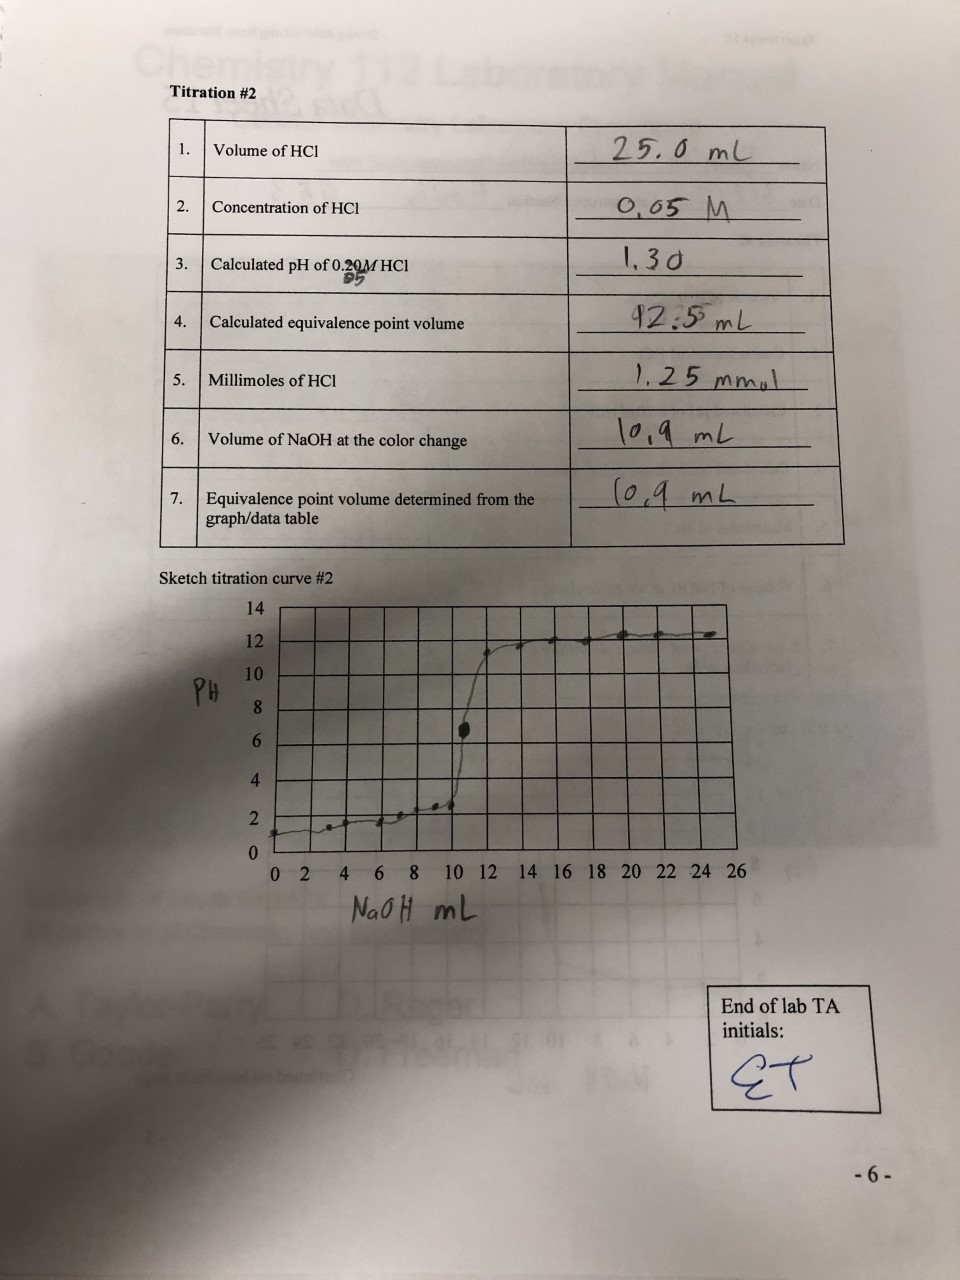 Titration #2
1. Volume of HCl 25.0 mL
2. Concentration of HCl 0.05 M
3. Calculated pH of 0.20M HCl 1.30
05
4. Calculated equivalence point volume 12.5 mL
5. Millimoles of HCl 1.25 mmol
6. Volume of NaOH at the color change 10.9 mL
7. Equivalence point volume determined from the 10.9 mL
graph/data table
Sketch titration curve #2
14
12
10
PH
8
6
4
2
0
0 2 4 6 8 10 12 14 16 18 20 22 24 26
NaOH mL
End of lab TA
initials:
ET
- 6 -